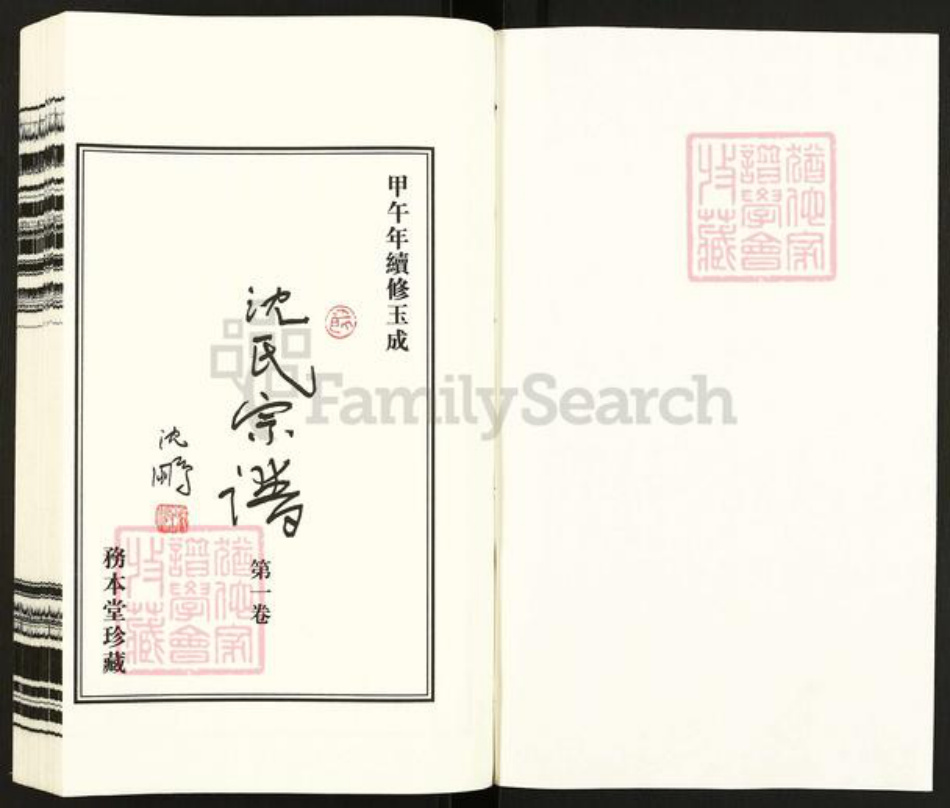 甲午年續修玉成
沈氏宗譜
第一卷
沈鵬
務本堂珍藏
猶他家
譜學會
收藏
猶他家
譜學會
收藏
FamilySearch